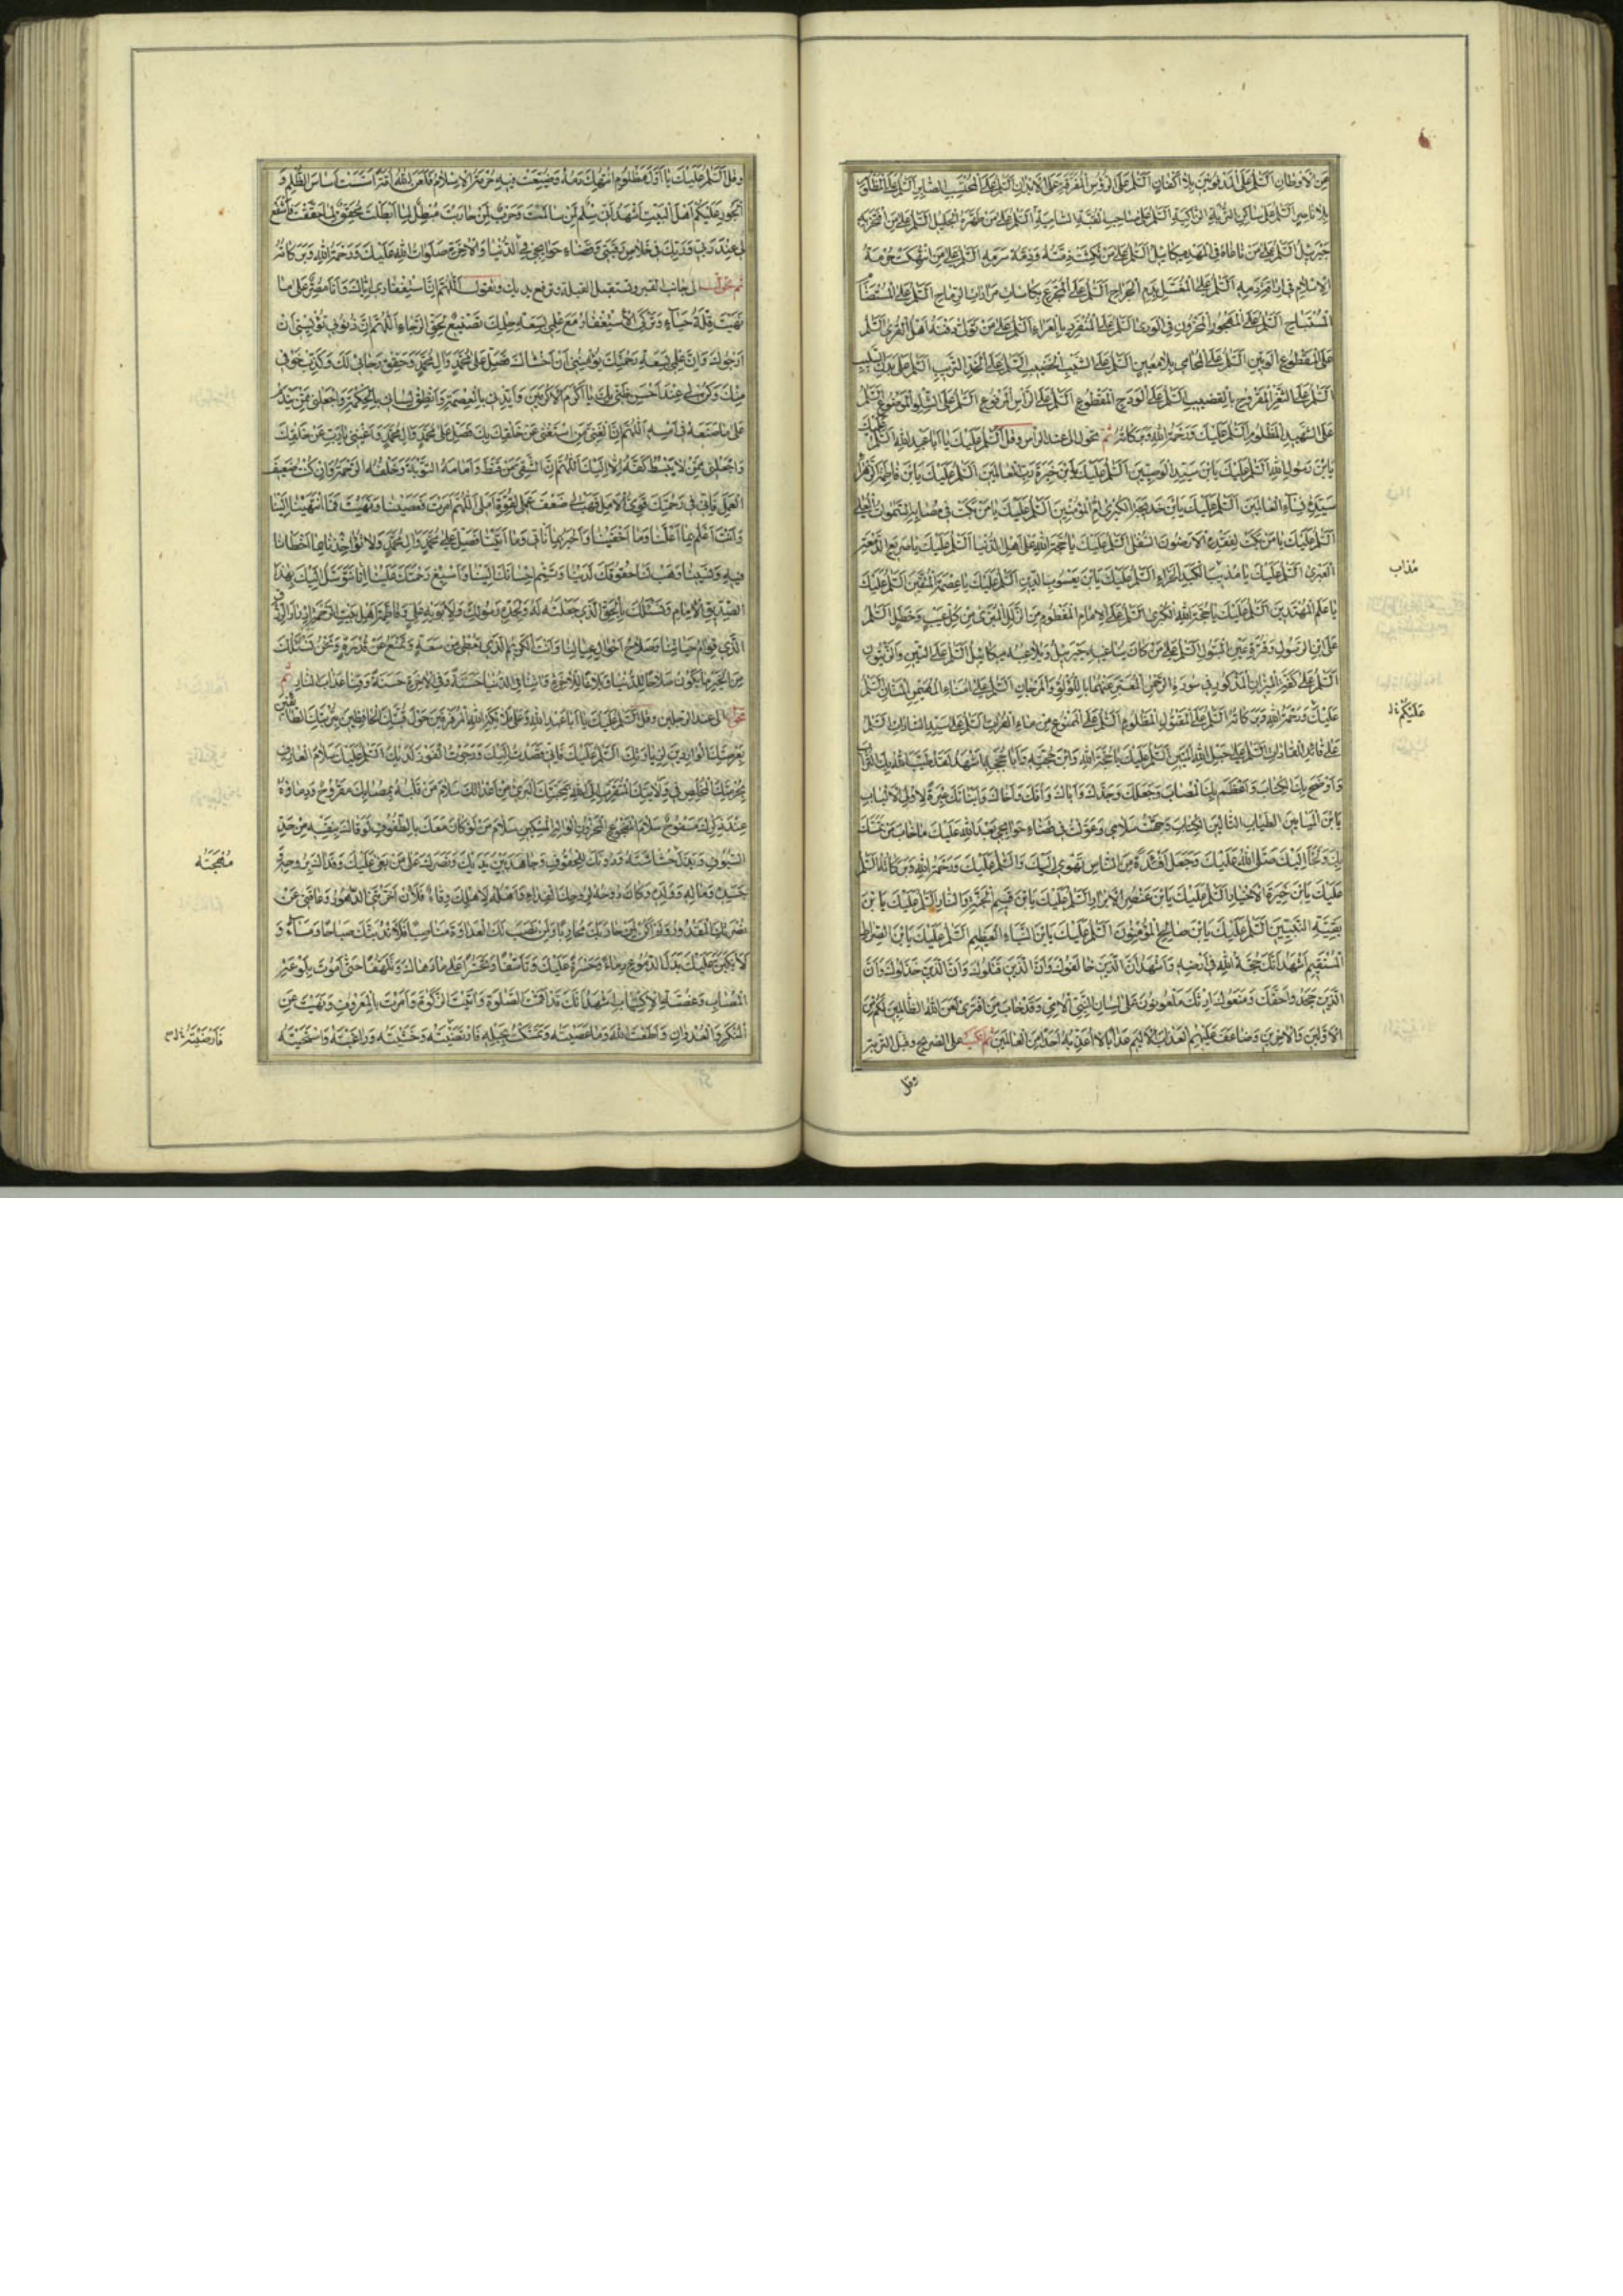 عن الاوطان السلم على المدفونين بلا اكفان السلم على الرؤس المفرقة عن الابدان السلم على المحتسب الصابر السلم على المظلوم
بلا ناصر السلم على ساكن التربة الزاكية السلم على صاحب القبة السامية السلم على من طهره الجليل السلم على من افتخر به
جبرئيل السلم على من ناغاه في المهد ميكائيل السلم على من نكثت ذمته وذمة حرمه السلم على من انتهكت حرمة
الاسلام في اراقة دمه السلم على المغسل بدم الجراح السلم على المجرع بكاسات مرارات الرماح السلم على المستضام
المستباح السلم على المهجور في الورى السلم على المنفرد بالعراء السلم على من تولى دفنه اهل القرى السلم
على المقطوع الوتين السلم على المحامي بلا معين السلم على الشيب الخضيب السلم على الخد التريب السلم على البدن السليب
السلم على الثغر المقروع بالقضيب السلم على الودج المقطوع السلم على الراس المرفوع السلم على الشلو الموضوع السلم
على الشهيد المظلوم السلم عليك ورحمة الله وبركاته ثم تحول الى عند الراس وقل السلم عليك يا ابا عبد الله السلم عليك
يابن رسول الله السلم عليك يابن سيد الوصيين السلم عليك يابن خيرة رب العالمين السلم عليك يابن فاطمة الزهراء
سيدة نساء العالمين السلم عليك يابن خديجة الكبرى ام المؤمنين السلم عليك يا من بكت في مصابه السموات العلى
السلم عليك يا من بكت لفقده الارضون السفلى السلم عليك يا حجة الله على اهل الدنيا السلم عليك يا صريع الدمعة
العبرى السلم عليك يا مذيب الكبد الحراء السلم عليك يابن يعسوب الدين السلم عليك يا عصمة المتقين السلم عليك
يا علم المهتدين السلم عليك يا حجة الله الكبرى السلم على الامام المفطوم من الزلل المبرى من كل عيب وخطل السلم
على ابن الرسول وقرة عين البتول السلم على من كان يناغيه جبرئيل ويلاعبه ميكائيل السلم على التين والزيتون
السلم على كفتي الميزان المذكور في سورة الرحمن المعبر عنهما باللؤلؤ والمرجان السلم على امناء المهيمن المنان السلم
عليك ورحمة الله وبركاته السلم على المقتول المظلوم السلم على الممنوع من ماء الفرات السلم على سيد السادات السلم
على قائد القادات السلم على حبل الله المتين السلم عليك يا حجة الله وابن حجته وابا حججه اشهد لقد طيب الله بك التراب
واوضح بك الكتاب واعظم بك المصاب وجعلك وجدك واباك وامك واخاك وابناءك عبرة لاولي الالباب
يابن الميامين الاطياب التالين الكتاب وجهت سلامي وعولت في قضاء حوائجي بعد الله عليك ما خاب من تمسك
بك ولجأ اليك صلى الله عليك وجعل افئدة من الناس تهوي اليك والسلم عليك ورحمة الله وبركاته السلم
عليك يابن خيرة الاخيار السلم عليك يابن عنصر الابرار السلم عليك يابن قسيم الجنة والنار السلم عليك يابن
بقية النبيين السلم عليك يابن صالح المؤمنين السلم عليك يابن النباء العظيم السلم عليك يابن الصراط
المستقيم اشهد انك حجة الله في ارضه واشهد ان الذين خالفوك وان الذين قتلوك وان الذين خذلوك وان
الذين جحدوا حقك ومنعوك ارثك ملعونون على لسان النبي الامي وقد خاب من افترى لعن الله الظالمين لكم من
الاولين والاخرين وضاعف عليهم العذاب الاليم عذابا لا اعذبه احدا من العالمين ثم انكب على الضريح وقبل التربة
وقل
مذاب
عليكم
وقل السلم عليك يا اول مظلوم انتهك دمه وضيعت فيه حرمة الاسلام فلعن الله امة اسست اساس الظلم و
الجور عليكم اهل البيت اشهد اني سلم لمن سالمت وحرب لمن حاربت مبطل لما ابطلت محقق لما حققت فاشفع
لي عند ربي وربك في خلاص رقبتي وقضاء حوائجي في الدنيا والاخرة صلوات الله عليك ورحمة الله وبركاته
ثم تحول الى جانب القبر وتستقبل القبلة وترفع يديك وتقول اللهم ان استغفاري اياك وانا مصر على ما
نهيت قلة حياء وتركي الاستغفار مع علمي بسعة حلمك تضييع لحق الرجاء اللهم ان ذنوبي تؤيسني ان
ارجوك وان علمي بسعة رحمتك يؤمنني ان اخشاك فصل على محمد وال محمد وحقق رجائي لك وكذب خوفي
منك وكن لي عند احسن ظني بك يا اكرم الاكرمين وايدني بالعصمة وانطق لساني بالحكمة واجعلني ممن يندم
على ما صنعه في امسه اللهم ان الغني من استغنى عن خلقك بك فصل على محمد وال محمد واغنني يا رب عن خلقك
واجعلني ممن لا يبسط كفه الا اليك اللهم ان الشقي من قنط وامامه التوبة وخلفه الرحمة وان كنت ضعيف
العمل فاني في رحمتك قوي الامل فهب لي ضعف عملي لقوة املي اللهم امرت فعصينا ونهيت فما انتهينا
وانت اعلم بما اعلنا وما اخفينا واخبر بما ناتي وما اتينا فصل على محمد وال محمد ولا تؤاخذنا بما اخطانا
فيه ونسينا وهب لنا حقوقك لدينا وتمم احسانك الينا واسبغ رحمتك علينا انا نتوسل اليك بهذا
الصديق الامام ونسئلك بالحق الذي جعلته له ولجده رسولك ولابويه علي وفاطمة اهل بيت الرحمة ادرار الرزق
الذي به قوام حياتنا وصلاح احوال عيالنا وانت الكريم الذي تعطي من سعة وتمنع عن قدرة ونحن نسئلك
من الخير ما يكون صلاحا للدنيا وبلاغا للاخرة واتنا في الدنيا حسنة وفي الاخرة حسنة وقنا عذاب النار ثم
تحول الى عند الرجلين وقل السلم عليك يا ابا عبد الله وعلى ملائكة الله المرفرفين حول قبتك الحافين بتربتك الطائفين
بعرصتك الواردين لزيارتك السلم عليك فاني قصدت اليك ورجوت الفوز لديك السلم عليك سلام العارف
بحرمتك المخلص في ولايتك المتقرب الى الله بمحبتك البرئ من اعدائك سلام من قلبه بمصابك مقروح ودمعه
عند ذكرك مسفوح سلام المفجوع المحزون الواله المسكين سلام من لو كان معك بالطفوف لوقاك بنفسه من حد
السيوف وبذل حشاشته دونك للحتوف وجاهد بين يديك ونصرك على من بغى عليك وفداك بروحه
وجسده وماله وولده وكان روحه لروحك الفداء واهله لاهلك وقاء فلان اخرتني الدهور وعاقني عن
نصرتك المقدور ولم اكن لمن حاربك محاربا ولمن نصب لك العداوة مناصبا فلاندبنك صباحا ومساء و
لابكين عليك بدل الدموع دماء وحسرة عليك وتاسفا وتحسرا على ما دهاك وتلهفا حتى اموت بلوعة
المصاب وغصة الاكتئاب اشهد انك قد اقمت الصلوة واتيت الزكوة وامرت بالمعروف ونهيت عن
المنكر والعدوان واطعت الله وما عصيته وتمسكت بحبله فارتضيته وخشيته وراقبته واستحييته
مهجته
فارضيته